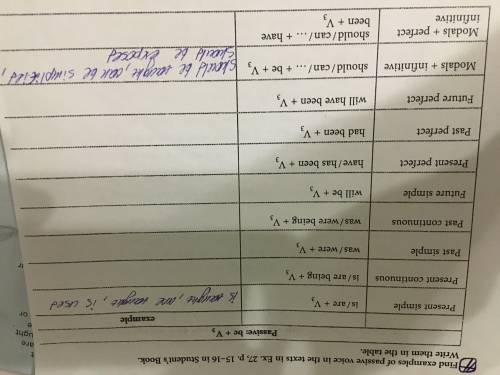 Find examples of passive voice in the texts in Ex. 27, p. 15–16 in Student's Book.
Write them in the table.
Passive: be + V3
example
Present simple
is/are + V3
is taught, are taught, is used
Present continuous
is/are being + V3
Past simple
was/were + V3
Past continuous
was/were being + V3
Future simple
will be + V3
Present perfect
have/has been + V3
Past perfect
had been + V3
Future perfect
will have been + V3
Modals + infinitive
should/can/... + be + V3
should be taught, can be simplified,
should be exposed
Modals + perfect
infinitive
should/can/... + have
been + V3